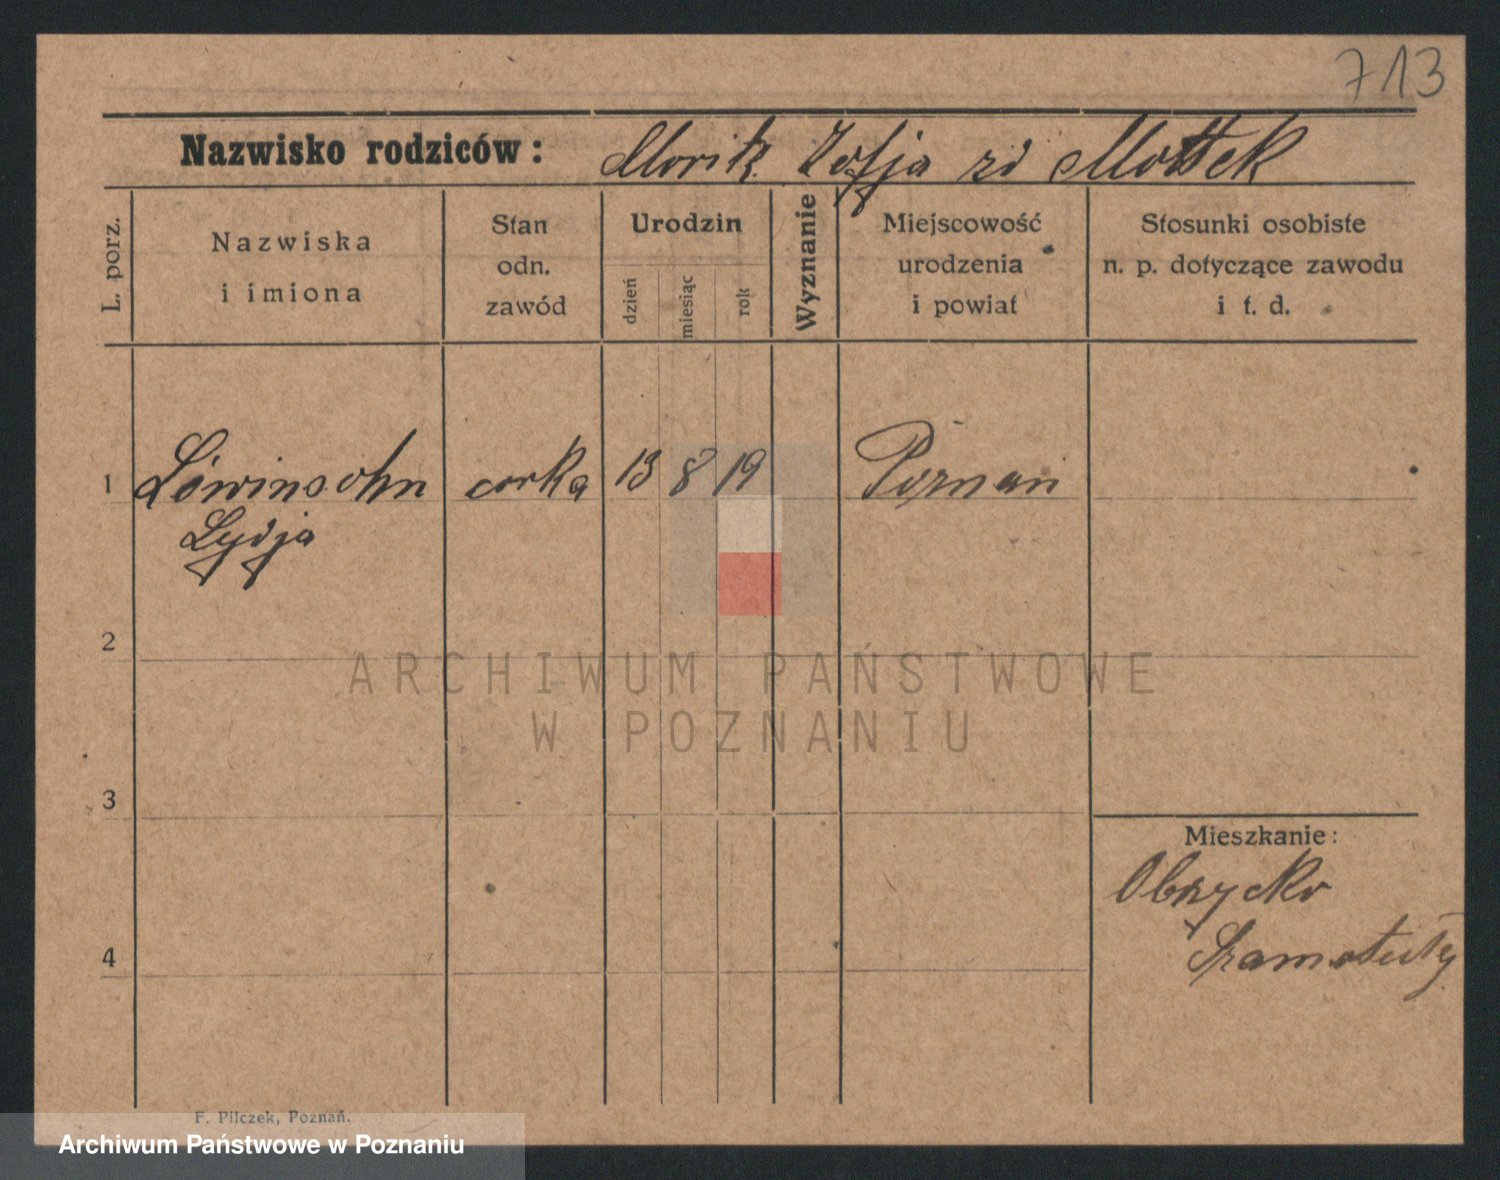 713
Nazwisko rodziców: Morik. Zofja zd Mottek
L. porz.
Nazwiska
i imiona
Stan
odn.
zawód
Urodzin
dzień
miesiąc
rok
Wyznanie
Miejscowość
urodzenia
i powiat
Stosunki osobiste
n. p. dotyczące zawodu
i t. d.
1 Löwinsohn corka 13 8 19 Poznań
Lydja
2
ARCHIWUM PAŃSTWOWE
W POZNANIU
3
Mieszkanie:
Obrzycko
Szamotuły
4
F. Pilczek, Poznań.
Archiwum Państwowe w Poznaniu